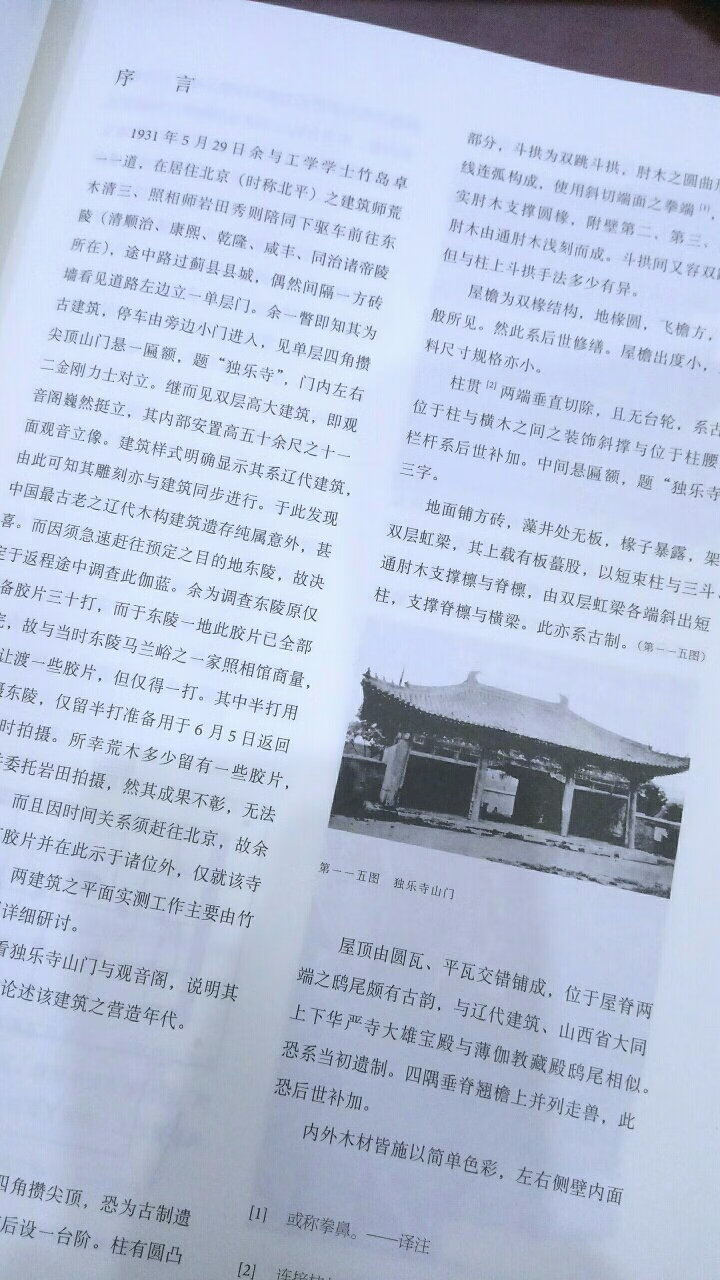 序 言
1931年5月29日余与工学学士竹岛卓
一一道，在居住北京（时称北平）之建筑师荒
木清三、照相师岩田秀则陪同下驱车前往东
陵（清顺治、康熙、乾隆、咸丰、同治诸帝陵
所在），途中路过蓟县县城，偶然间隔一方砖
墙看见道路左边立一单层门。余一瞥即知其为
古建筑，停车由旁边小门进入，见单层四角攒
尖顶山门悬一匾额，题“独乐寺”，门内左右
二金刚力士对立。继而见双层高大建筑，即观
音阁巍然挺立，其内部安置高五十余尺之十一
面观音立像。建筑样式明确显示其系辽代建筑，
由此可知其雕刻亦与建筑同步进行。于此发现
中国最古老之辽代木构建筑遗存纯属意外，甚
喜。而因须急速赶往预定之目的地东陵，故决
定于返程途中调查此伽蓝。余为调查东陵原仅
备胶片三十打，而于东陵一地此胶片已全部
完，故与当时东陵马兰峪之一家照相馆商量，
让渡一些胶片，但仅得一打。其中半打用
摄东陵，仅留半打准备用于6月5日返回
时拍摄。所幸荒木多少留有一些胶片，
委托岩田拍摄，然其成果不彰，无法
而且因时间关系须赶往北京，故余
胶片并在此示于诸位外，仅就该寺
两建筑之平面实测工作主要由竹
详细研讨。
看独乐寺山门与观音阁，说明其
论述该建筑之营造年代。
四角攒尖顶，恐为古制遗
后设一台阶。柱有圆凸
部分，斗拱为双跳斗拱，肘木之圆曲
线连弧构成，使用斜切端面之拳端[1]，
实肘木支撑圆椽，附壁第二、第三、
肘木由通肘木浅刻而成。斗拱间又容双
但与柱上斗拱手法多少有异。
屋檐为双椽结构，地椽圆，飞檐方，
般所见。然此系后世修缮。屋檐出度小，
料尺寸规格亦小。
柱贯[2]两端垂直切除，且无台轮，系古
位于柱与横木之间之装饰斜撑与位于柱腰
栏杆系后世补加。中间悬匾额，题“独乐寺
三字。
地面铺方砖，藻井处无板，椽子暴露，架
双层虹梁，其上载有板蟇股，以短束柱与三斗、
通肘木支撑檩与脊檩，由双层虹梁各端斜出短
柱，支撑脊檩与横梁。此亦系古制。（第一一五图）
第一一五图 独乐寺山门
屋顶由圆瓦、平瓦交错铺成，位于屋脊两
端之鸱尾颇有古韵，与辽代建筑、山西省大同
上下华严寺大雄宝殿与薄伽教藏殿鸱尾相似。
恐系当初遗制。四隅垂脊翘檐上并列走兽，此
恐后世补加。
内外木材皆施以简单色彩，左右侧壁内面
[1] 或称拳鼻。——译注
[2] 连接